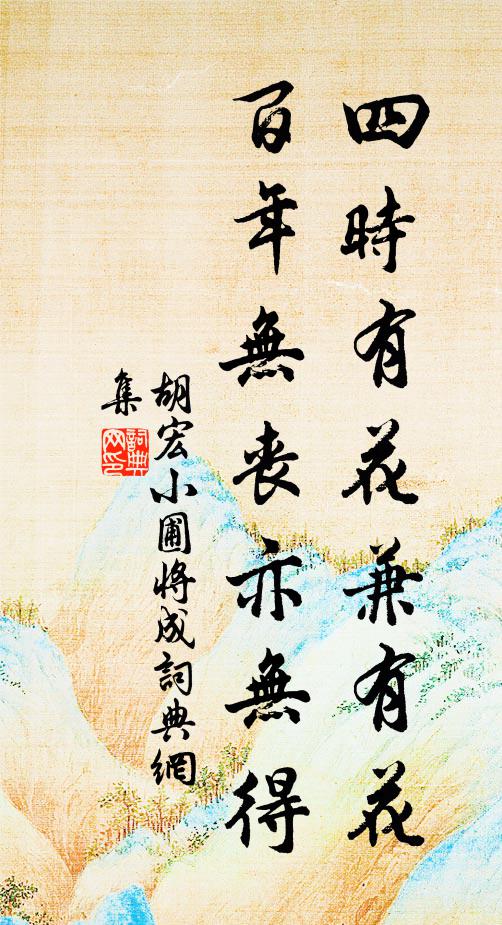 四時有花兼有花
百年無喪亦無得
胡宏小圃將成詞典網
集
詞典
网印